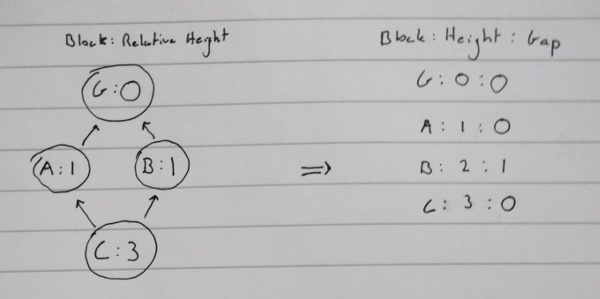 Block: Relative Height
G:0
A:1
B:1
C:3
⇒
Block: Height: Gap
G: 0 :0
A: 1 : 0
B: 2 : 1
C: 3 : 0